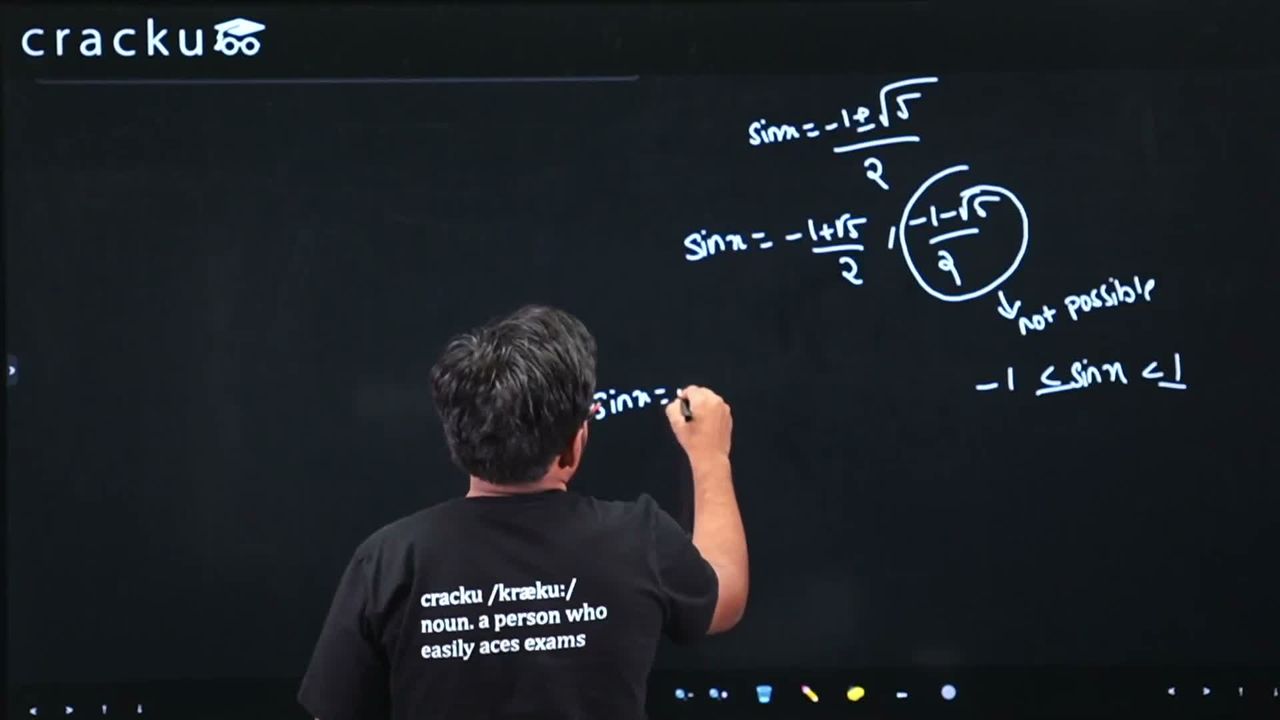 cracku
sinx = -1±√5/2
sinx = -1+√5/2 , -1-√5/2
not possible
-1 ≤ sinx ≤ 1
sinx =
cracku /kræku:/
noun. a person who
easily aces exams